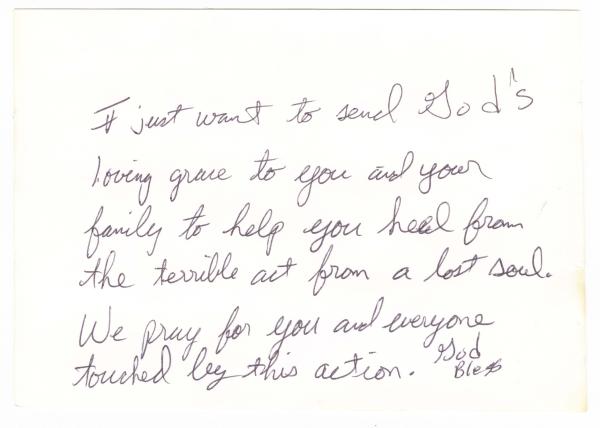 I just want to send God's
Loving grace to you and your
family to help you heal from
the terrible act from a lost soul.
We pray for you and everyone
touched by this action. God
Bless